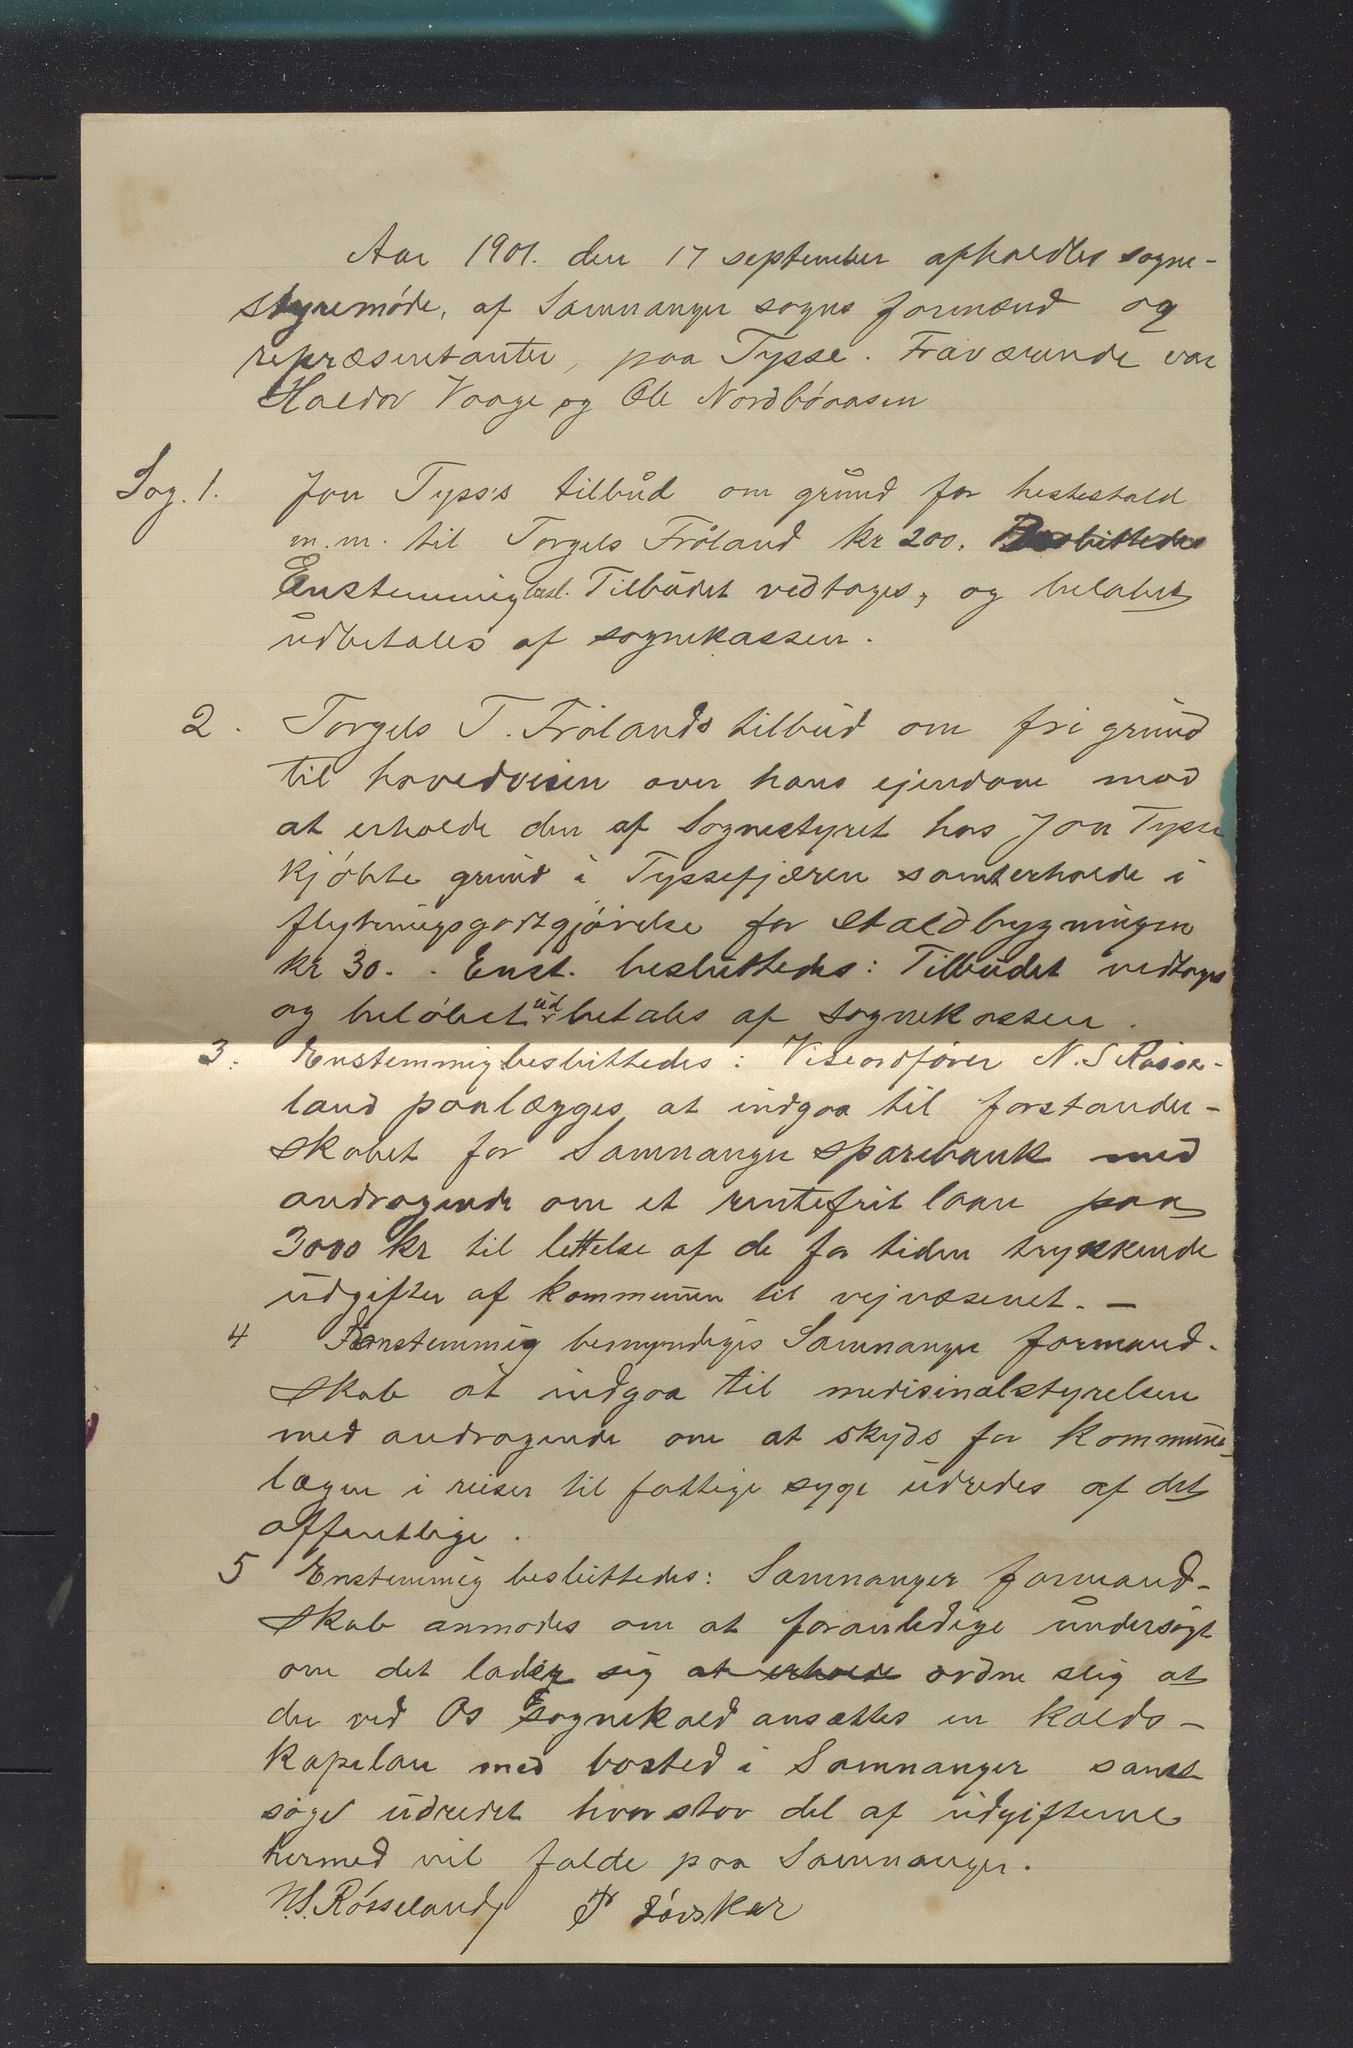 Aar 1901. den 17 september afholdtes sogne-
styremøde, af Samnanger sogns formænd og
repræsentanter, paa Tysse. Fraværende var
Haldor Vaage og Ole Nordbøaasen
Sag. 1. Jon Tysses tilbud om grund for hestestald
m.m. til Torgels Frøland kr 200. Besluttedes
Enstemmig besl. Tilbudet vedtages, og beløbet
udbetales af sognekassen.
2. Torgels T. Frølands tilbud om fri grund
til hovedveien over hans ejendom mod
at erholde den af Sognestyret hos Jon Tysse
kjøbte grund i Tyssefjæren samt erholde i
flytningsgodtgjørelse for staldbygningen
kr 30. . Enst. besluttedes: Tilbudet vedtages
og beløbet udbetales af sognekassen.
3. Enstemmig besluttedes: Viseordfører N. S Røsse-
land paalægges at indgaa til forstander-
skabet for Samnanger sparebank med
andragende om et rentefrit laan paa
3000 kr til lettelse af de for tiden trykkende
udgifter af kommunen til vejvæsenet. —
4 Enstemmig bemyndiges Samnanger formand-
skab at indgaa til medisinalstyrelsen
med andragende om at skyds for kommune-
lægen i reiser til fattige syge udredes af det
offentlige.
5 Enstemmig besluttedes: Samnanger formand-
skab anmodes om at foranledige undersøgt
om det lader sig at erholde ordne slig at
der ved Os Sognekald ansættes en kalds-
kapelan med bosted i Samnanger samt
søge udredet hvor stor del af udgifterne
hermed vil falde paa Samnanger.
N.S. Røsseland